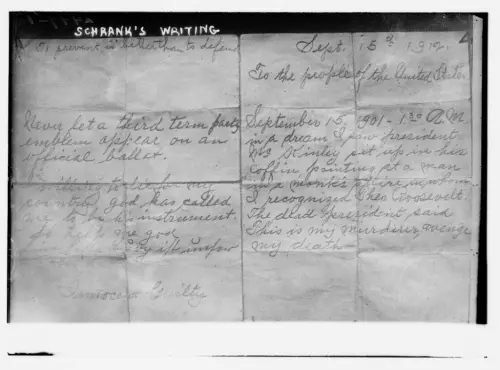 SCHRANK'S WRITING
to prevent, is better than to defend
Never let a third term party
emblem appear on an
official ballot.
willing to die for my
country, god has called
me to be his instrument
So help me god
Innocent Guilty
Sept. 15th 1912.
To the people of the United States
September 15, 1901 - 1:30 A.M.
in a dream I saw President
Mc Kinley set up in his
Coffin, pointing at a man
in a monk's attire in whom
I recognized Theo. Roosevelt.
The dead president said
This is my murderer, avenge
my death